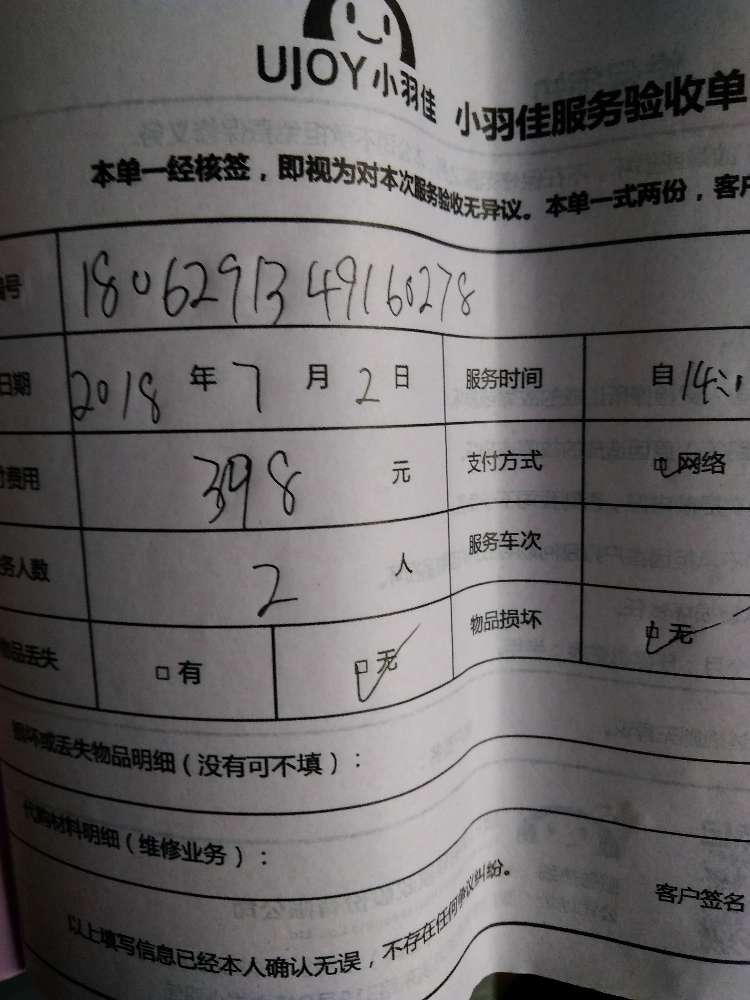 UJOY小羽佳 小羽佳服务验收单
本单一经核签，即视为对本次服务验收无异议。本单一式两份，客户
编号 1806291349160278
日期 2018 年 7 月 2 日 服务时间 自 14:
付费用 398 元 支付方式 网络
务人数 2 人 服务车次
物品丢失 □ 有 □ 无 物品损坏 □ 无
损坏或丢失物品明细（没有可不填）：
代购材料明细（维修业务）：
客户签名
以上填写信息已经本人确认无误，不存在任何争议纠纷。